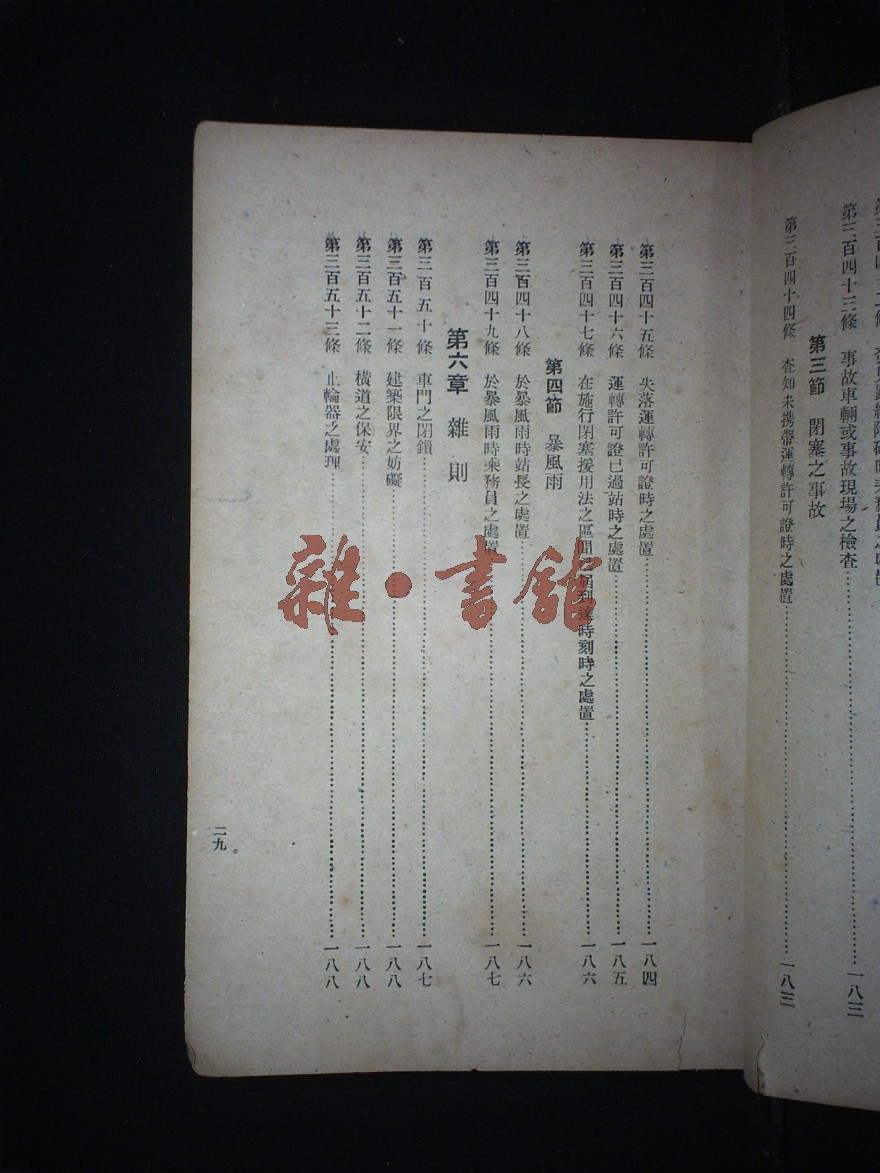 第三百四十三條 事故車輛或事故現場之檢查……一八三
第三節 閉塞之事故
第三百四十四條 查知未携帶運轉許可證時之處置……一八三
第三百四十五條 失落運轉許可證時之處置……一八四
第三百四十六條 運轉許可證已過站時之處置……一八五
第三百四十七條 在施行閉塞援用法之區間 到達時刻時之處置……一八六
第四節 暴風雨
第三百四十八條 於暴風雨時站長之處置……一八六
第三百四十九條 於暴風雨時乘務員之處置……一八七
第六章 雜則
第三百五十條 車門之閉鎖……一八七
第三百五十一條 建築限界之妨礙……一八八
第三百五十二條 橫道之保安……一八八
第三百五十三條 止輪器之處理……一八八
二九
雜·書館